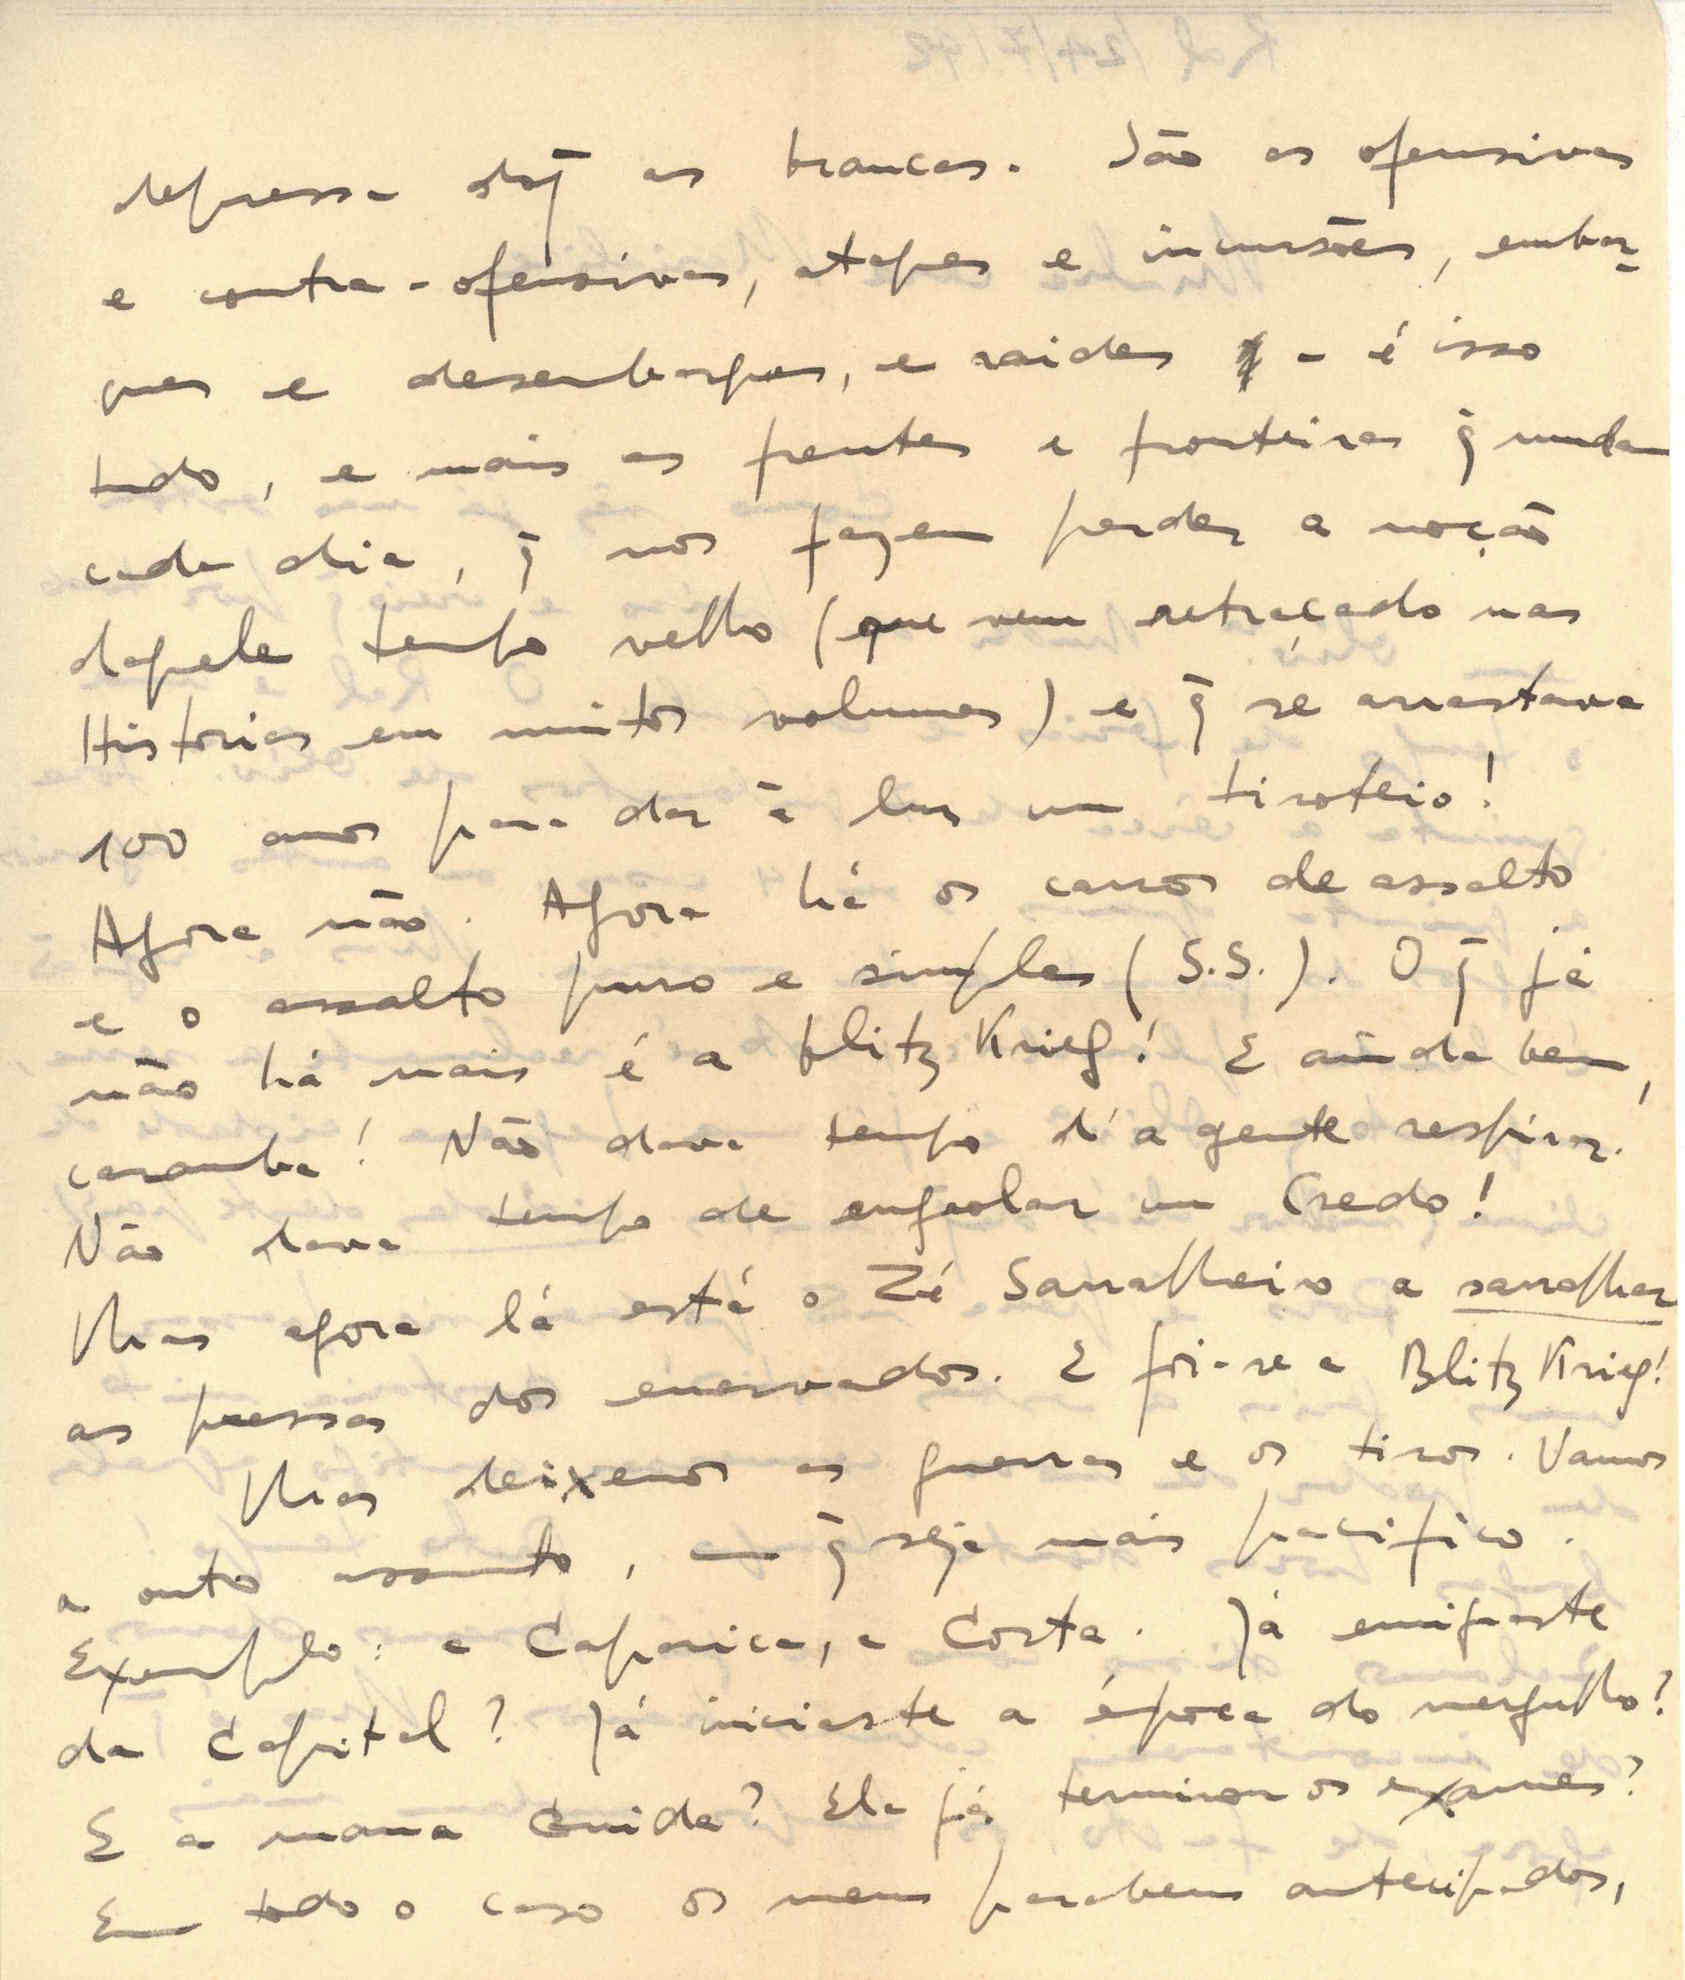 depressa doq̃ as brancas. São as ofensivas
e contra-ofensivas, ataques e incursões, embar-
ques e desembarques, e raides - é isso
tudo, e mais as frentes e fronteiras q̃ mudam
cada dia, q̃ nos fazem perder a noção
daquele tempo velho (que vem retraçado nas
Historias em muitos volumes) e q̃ se arrastava
100 anos para dar à luz um tiroteio!
Agora não. Agora há os carros de assalto
e o assalto puro e simples (S.S.). O q̃ já
não há mais é a blitz Krieg! E ainda bem,
caramba! Não dava tempo d'a gente respirar!
Não dava tempo de engrolar um Credo!
Mas agora lá está o Zé Sarralheiro a sarralhar
as pressas dos enervados. E foi-se a Blitz Krieg!
Mas deixemos as guerras e os tiros. Vamos
a outro assunto, em q̃ seja mais pacifico.
Exemplo: a Caparica, a Costa. Já emigraste
da Capital? Já iniciaste a época do mergulho?
E a mana Guida? Ela já terminou os exames?
Em todo o caso os meus parabens antecipados,